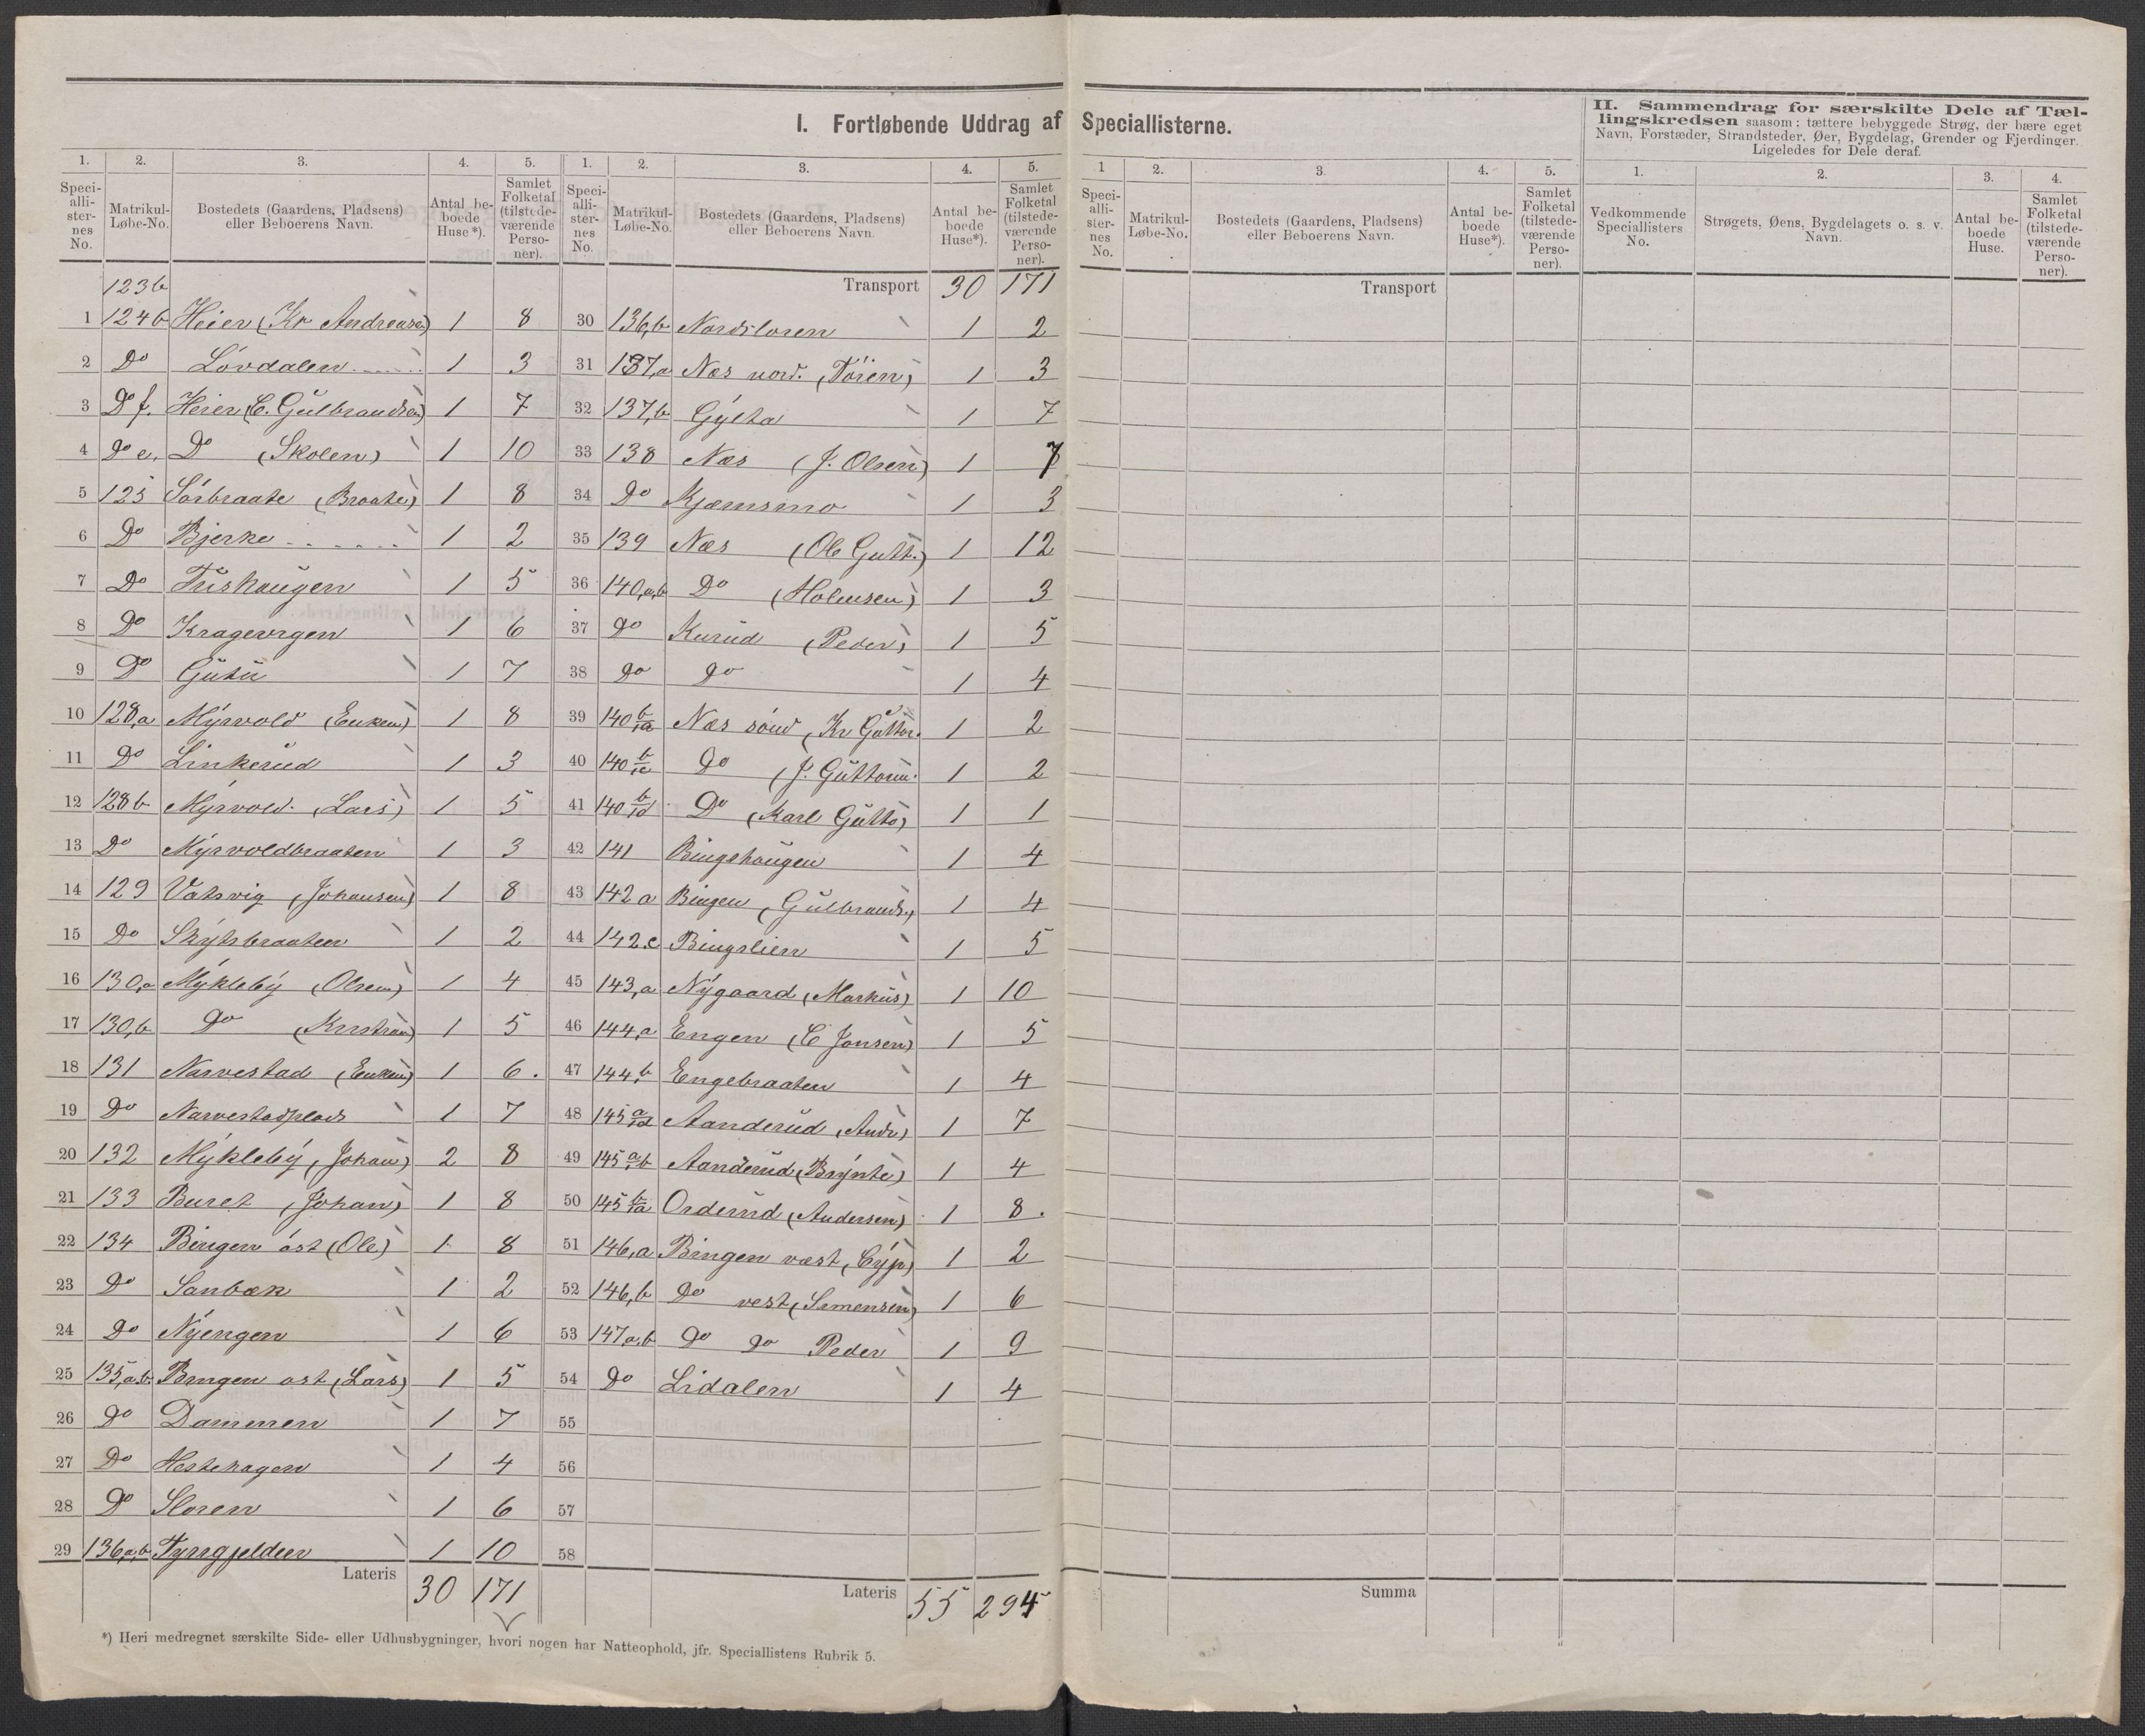 I. Fortløbende Uddrag af Speciallisterne.
II. Sammendrag for særskilte Dele af Tæl-
lingskredsen saasom: tættere bebyggede Strøg, der bære eget
Navn, Forstæder, Strandsteder, Øer, Bygdelag, Grender og Fjerdinger.
Ligeledes for Dele deraf.
1. 2. 3. 4. 5. 1. 2. 3. 4. 5. 1 2. 3. 4. 5. 1. 2. 3. 4.
Speci-alli-ster-nes No. Matrikul-Løbe-No. Bostedets (Gaardens, Pladsens) eller Beboerens Navn. Antal be-boede Huse*). Samlet Folketal (tilstede-værende Perso-ner).
Speci-alli-ster-nes No. Matrikul-Løbe-No. Bostedets (Gaardens, Pladsens) eller Beboerens Navn. Antal be-boede Huse*). Samlet Folketal (tilstede-værende Perso-ner).
Speci-alli-ster-nes No. Matrikul-Løbe-No. Bostedets (Gaardens, Pladsens) eller Beboerens Navn. Antal be-boede Huse*). Samlet Folketal (tilstede-værende Perso-ner).
Vedkommende Speciallisters No. Strøgets, Øens, Bygdelagets o. s. v. Navn. Antal be-boede Huse. Samlet Folketal (tilstede-værende Perso-ner).
123b
1 124b Heier (Kr Andreasen) 1 8
2 Do Lövdalen 1 3
3 Do f. Heier (C. Gulbrandsen) 1 7
4 Do e. Do (Skolen) 1 10
5 125 Sörbraate (Braate) 1 8
6 Do Bjerke 1 2
7 Do Friskaugen 1 5
8 Do Krageorgen 1 6
9 Do Gutu 1 7
10 128,a Myrvold (Enken) 1 8
11 Do Linkerud 1 3
12 128b Myrvold (Lars) 1 5
13 Do Myrvoldbraaten 1 3
14 129 Vatsvig (Johansen) 1 8
15 Do Skytsbraaten 1 2
16 130,a Mykleby (Olsen) 1 4
17 130,b Do (Kristian) 1 5
18 131 Narvestad (Enken) 1 6.
19 Do Narvestadplads 1 7
20 132 Mykleby (Johan) 2 8
21 133 Buret (Johan) 1 8
22 134 Bingen öst (Ole) 1 8
23 Do Sanbæk 1 2
24 Do Nyengen 1 6
25 135,a.b Bingen ost (Lars) 1 5
26 Do Dammen 1 7
27 Do Hestehagen 1 4
28 Do Sloren 1 6
29 136,a,b Tyrigjelden 1 10
Lateris 30 171
Transport 30 171
30 136,b Nordsloren 1 2
31 137,a Næs nord. (Tören) 1 3
32 137,b Gylta 1 7
33 138 Næs (J. Olsen) 1 7
34 Do Kjæmsmo 1 3
35 139 Næs (Ole Gutt.) 1 12
36 140,a,b Do (Holmsen) 1 3
37 Do Kurud (Peder) 1 5
38 Do Do 1 4
39 140 b/1a Næs sönd (Kr Guttor. 1 2
40 140 b/1c Do (J. Guttorm. 1 2
41 140 b/1d Do (Karl Gutto) 1 1
42 141 Bingshaugen 1 4
43 142 a Bingen (Gulbrands.) 1 4
44 142.c Bingslien 1 5
45 143,a Nygaard (Markus) 1 10
46 144,a Engen (C Jonsen) 1 5
47 144,b Engebraaten 1 4
48 145 a/1a Aanderud (Andr) 1 7
49 145 a/1b Aanderud (Brynte) 1 4
50 145 b/1a Orderud (Andersen) 1 8.
51 146,a Bingen væst (Cyp) 1 2
52 146,b Do vest (Simensen) 1 6
53 147a.b Do Do Peder 1 9
54 Do Lidalen 1 4
55
56
57
58
Lateris 55 294
Transport
Summa
*) Heri medregnet særskilte Side- eller Udhusbygninger, hvori nogen har Natteophold, jfr. Speciallistens Rubrik 5.